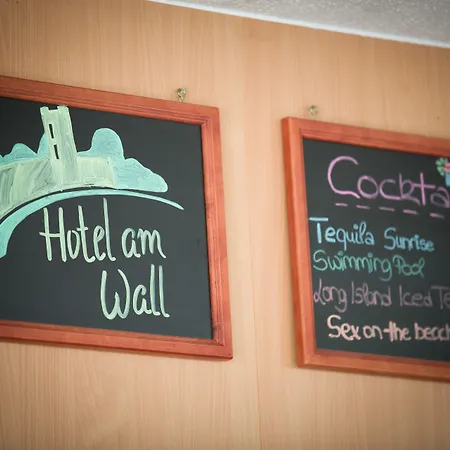 Hotel am
Wall
Cockta
Tequila Sunrise
Swimming Pool
Long Island Iced Te
Sex on the beach